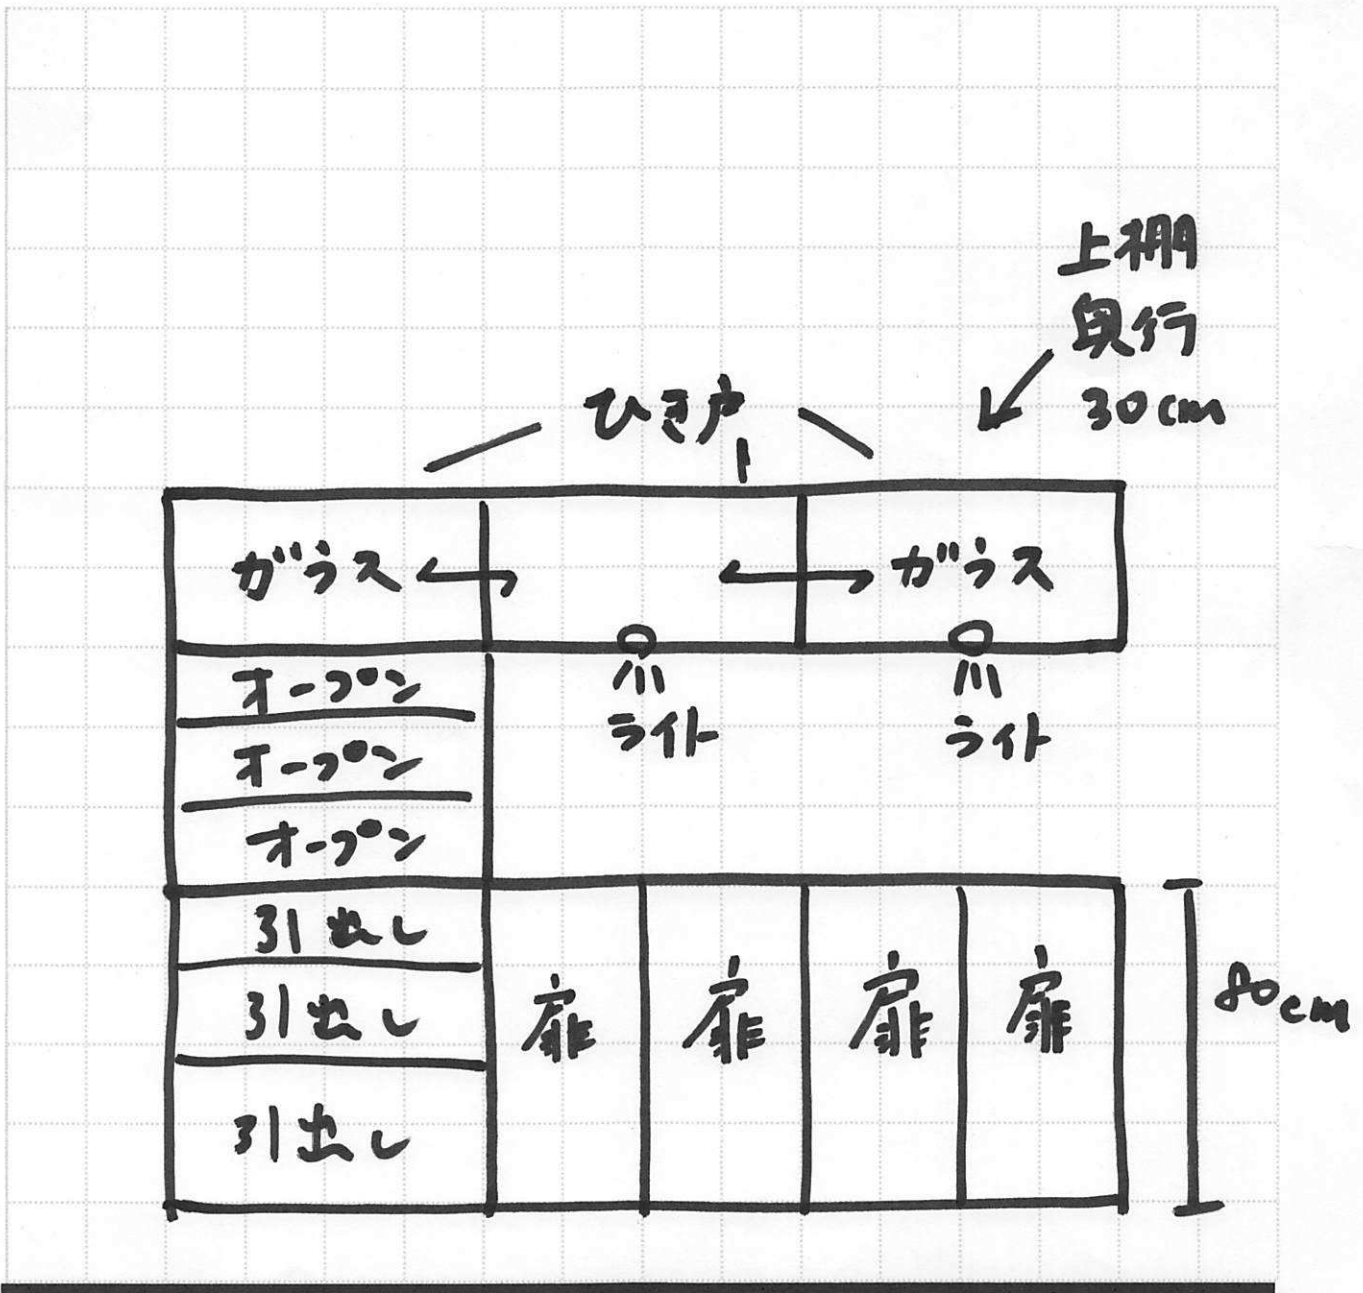 上棚
奥行
30cm
ひき戸
ガラス
ガラス
オープン
ライト
ライト
オープン
オープン
引出し
引出し
引出し
扉
扉
扉
扉
80cm